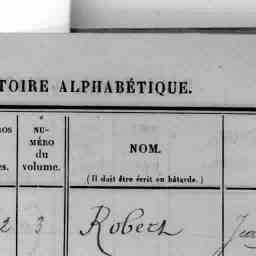 TOIRE ALPHABÉTIQUE.
NU-
MÉRO
du
volume.
NOM.
(Il doit être écrit en bâtarde.)
2 3 Robert